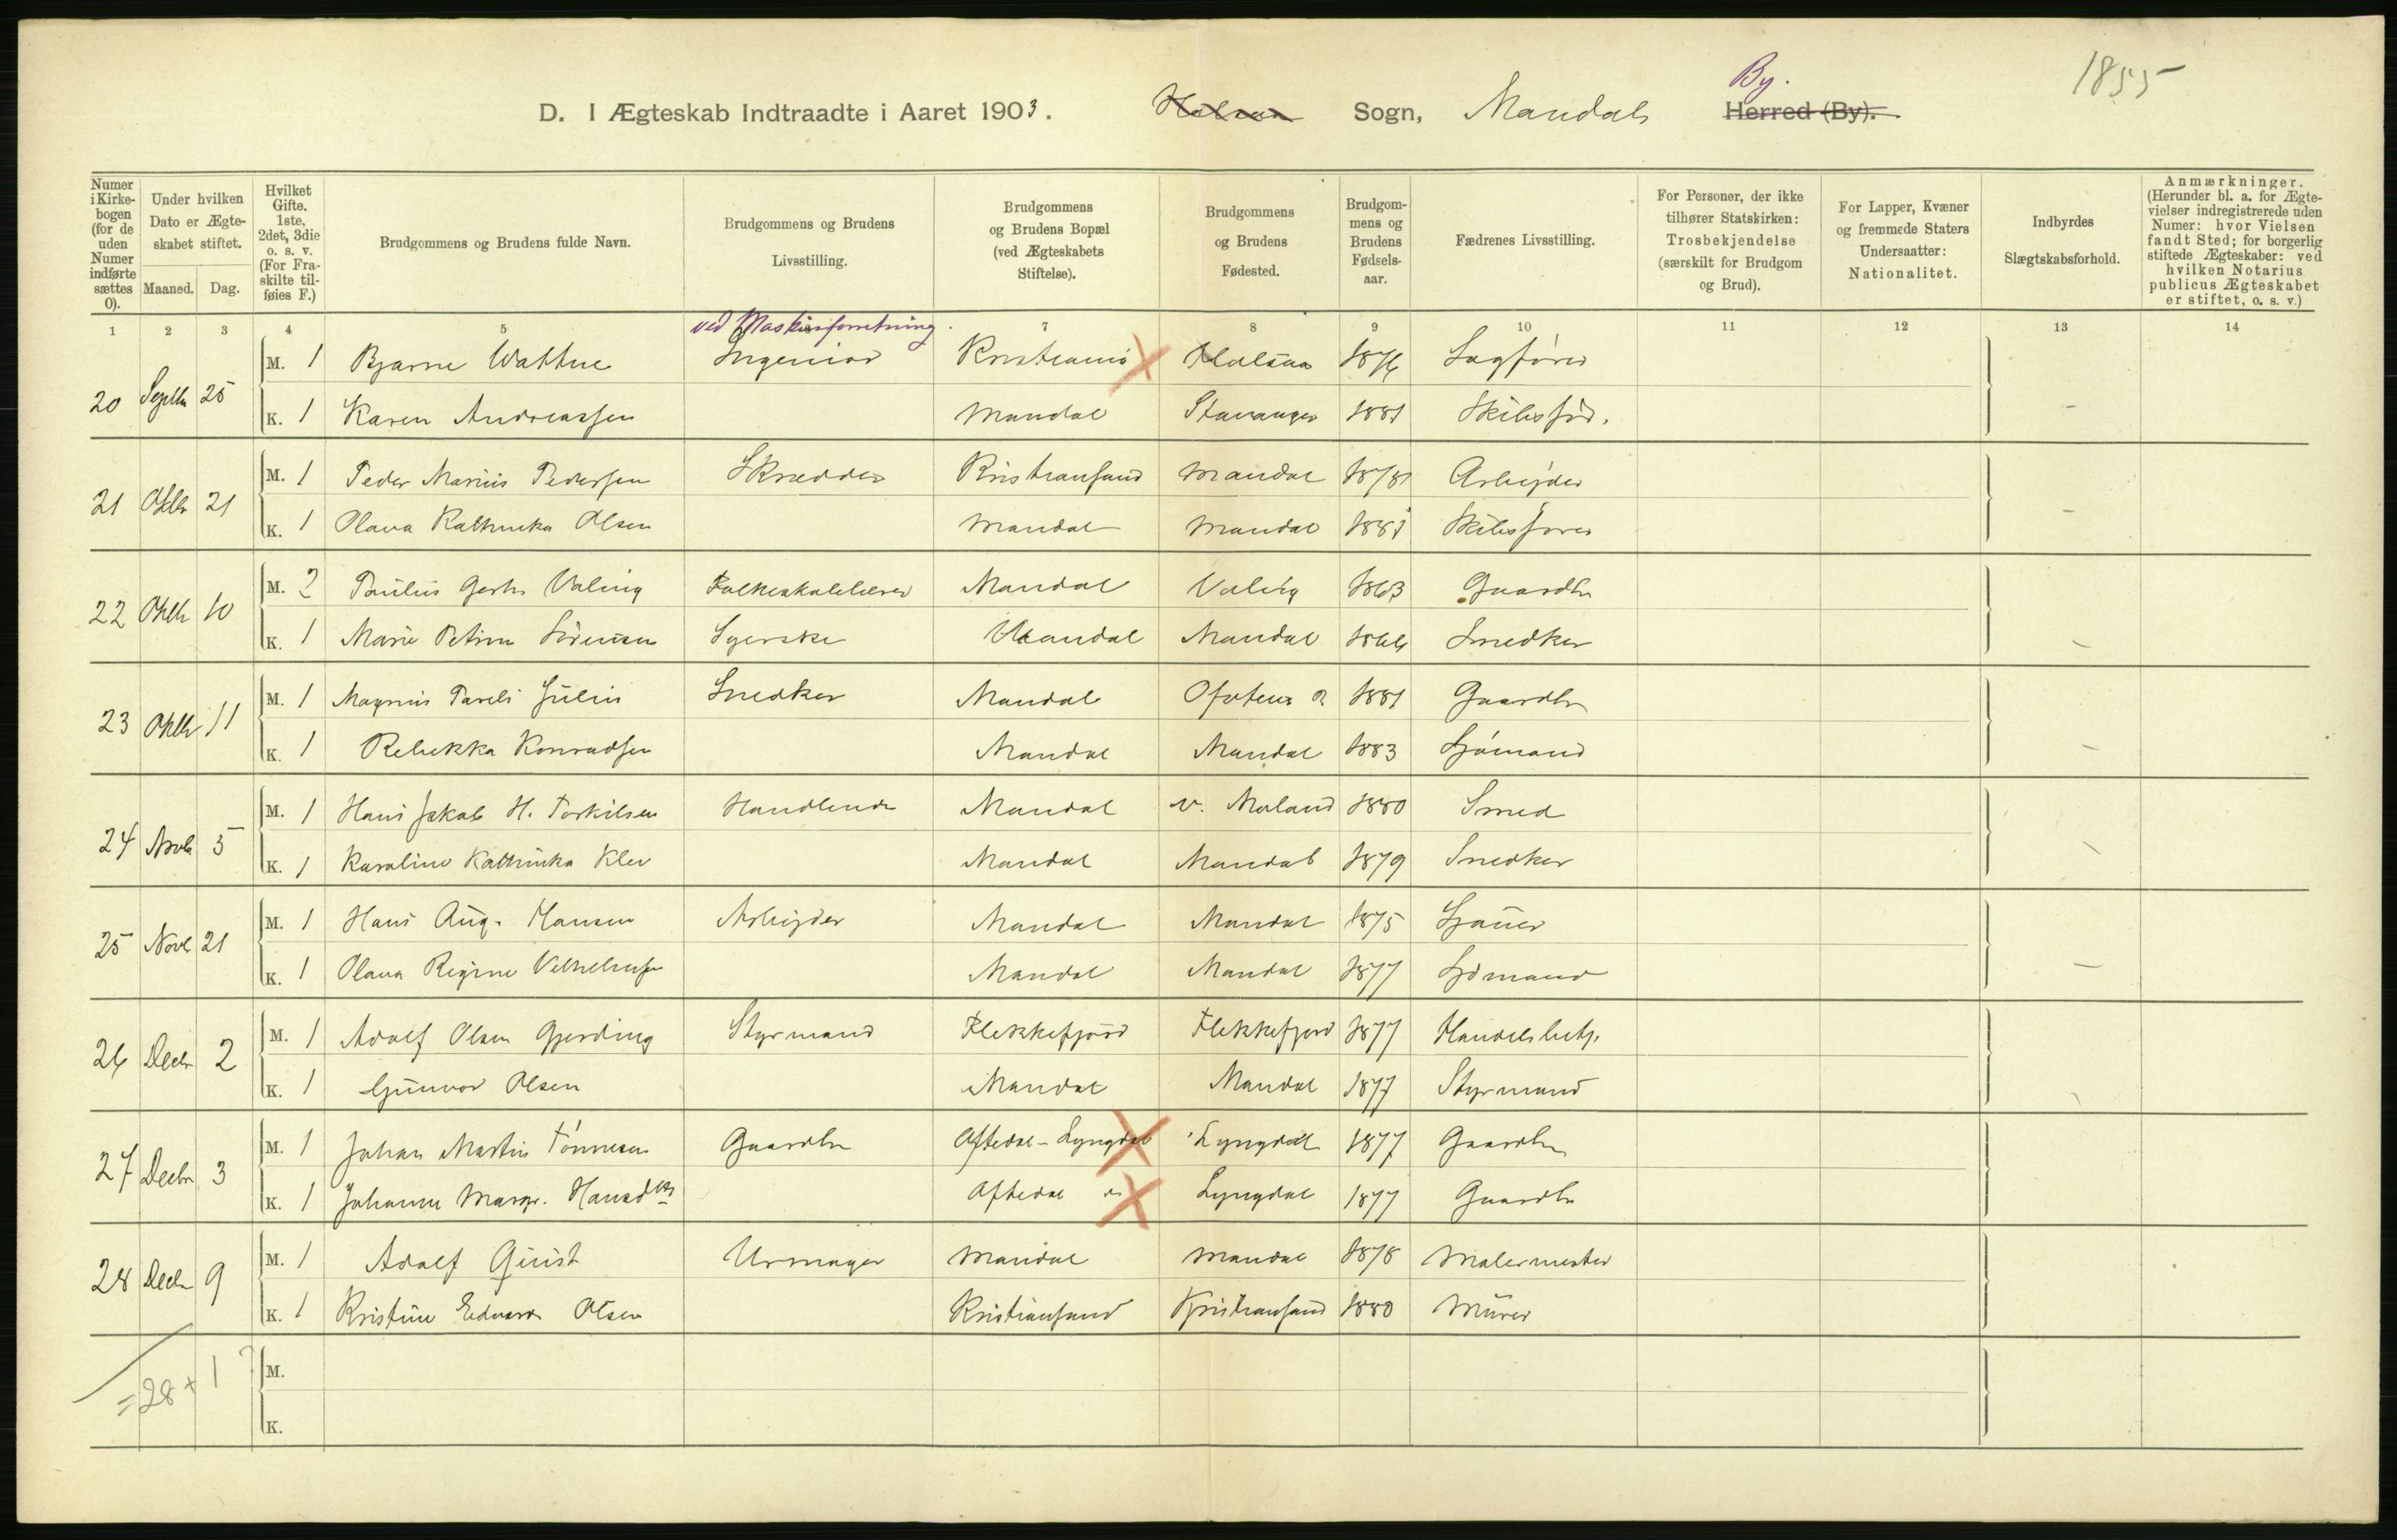 1855
By.
D. I Ægteskab Indtraadte i Aaret 1903. Halsaa Sogn, Mandals Herred (By).
Numer i Kirkebogen (for de uden Numer indførte sættes 0).
Under hvilken Dato er Ægteskabet stiftet.
Maaned. Dag.
Hvilket Gifte. 1ste, 2det, 3die o. s. v. (For Fraskilte tilføies F.)
Brudgommens og Brudens fulde Navn.
Brudgommens og Brudens Livsstilling.
Brudgommens og Brudens Bopæl (ved Ægteskabets Stiftelse).
Brudgommens og Brudens Fødested.
Brudgommens og Brudens Fødselsaar.
Fædrenes Livsstilling.
For Personer, der ikke tilhører Statskirken: Trosbekjendelse (særskilt for Brudgom og Brud).
For Lapper, Kvæner og fremmede Staters Undersaatter: Nationalitet.
Indbyrdes Slægtskabsforhold.
Anmærkninger. (Herunder bl. a. for Ægtevielser indregistrerede uden Numer: hvor Vielsen fandt Sted; for borgerlig stiftede Ægteskaber: ved hvilken Notarius publicus Ægteskabet er stiftet, o. s. v.)
1 2 3 4 5 6 7 8 9 10 11 12 13 14
ved Maskinforretning
20 Septbr 25 M. 1 Bjarne Wattne Ingeniør Kristiania Halsaa 1876 Sagfører
K. 1 Karen Andreassen Mandal Stavanger 1881 Skibsfør. -
21 Oktbr 21 M. 1 Peder Marius Pedersen Skrædder Kristiansand Mandal 1878 Arbejder
K. 1 Olava Kathinka Olsen Mandal Mandal 1881 Skibsfører -
22 Oktbr 10 M. 2 Paulus Gerh. Valøig Folkeskolelærer Mandal Valøig 1863 Gaardbr
K. 1 Marie Petrine Sørensen Syerske Mandal Mandal 1866 Snedker -
23 Oktbr 11 M. 1 Magnus Pareli Julin Snedker Mandal Ofoten 1881 Gaardbr
K. 1 Rebekka Konradsen Mandal Mandal 1883 Sjømand -
24 Novb 5 M. 1 Hans Jakob H. Torkilsen Handlende Mandal v. Moland 1880 Smed
K. 1 Karoline Kathinka Klev Mandal Mandal 1879 Snedker -
25 Novb 21 M. 1 Hans Aug. Hansen Arbejder Mandal Mandal 1875 Sjauer
K. 1 Olava Regine Vilhelmsen Mandal Mandal 1877 Sjømand -
26 Decbr 2 M. 1 Adolf Olsen Gjerding Styrmand Flekkefjord Flekkefjord 1877 Handelsbetj.
K. 1 Gunvor Olsen Mandal Mandal 1877 Styrmand -
27 Decbr 3 M. 1 Johan Martin Tønnesen Gaardbr Aftedal - Lyngdal Lyngdal 1877 Gaardbr
K. 1 Johanne Margr. Hansdtr Aftedal Lyngdal 1877 Gaardbr
28 Decbr 9 M. 1 Adolf Quist Urmager Mandal Mandal 1878 Malermester
K. 1 Kristine Edvarda Olsen Kristiansand Kristiansand 1880 Murer
= 28 + 1 M.
K.